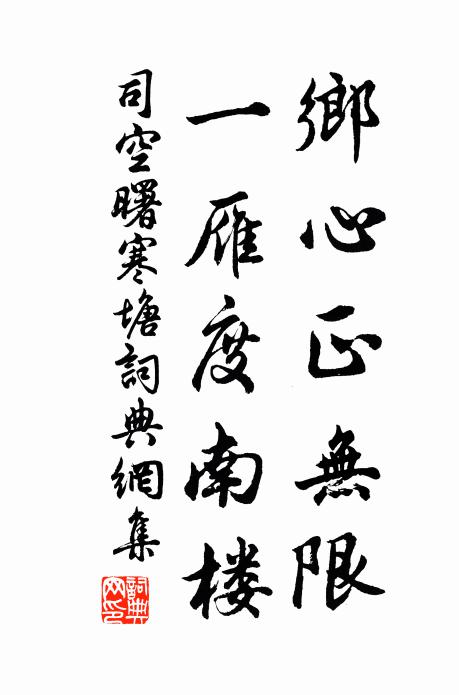 鄉心正無限
一雁度南楼
司空曙寒塘詞典網集
詞典網印